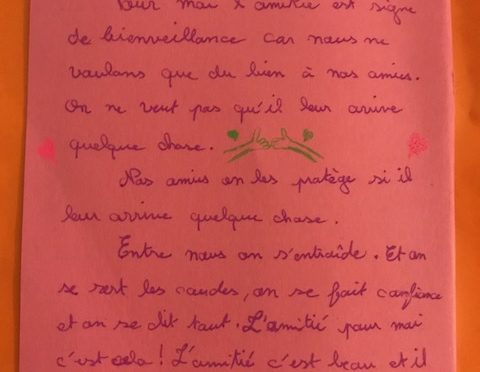 Pour moi l'amitié est signe
de bienveillance car nous ne
voulons que du bien à nos amies.
On ne veut pas qu'il leur arrive
quelque chose.
Nos amies on les protège si il
leur arrive quelque chose.
Entre nous on s'entraîde. Et on
se sert les coudes, on se fait confiance
et on se dit tout. L'amitié pour moi
c'est cela ! L'amitié c'est beau et il